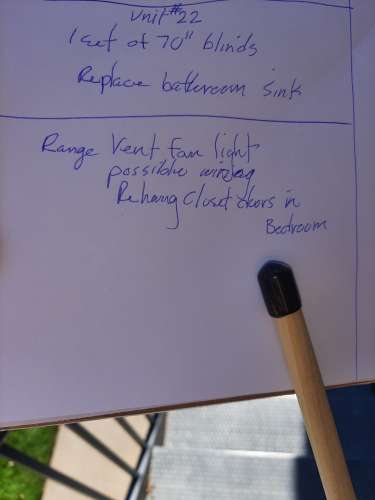 Unit #22
1 set of 70" blinds
Replace bathroom sink
Range Vent fan light
possible wiring
Rehang Closet doors in
Bedroom